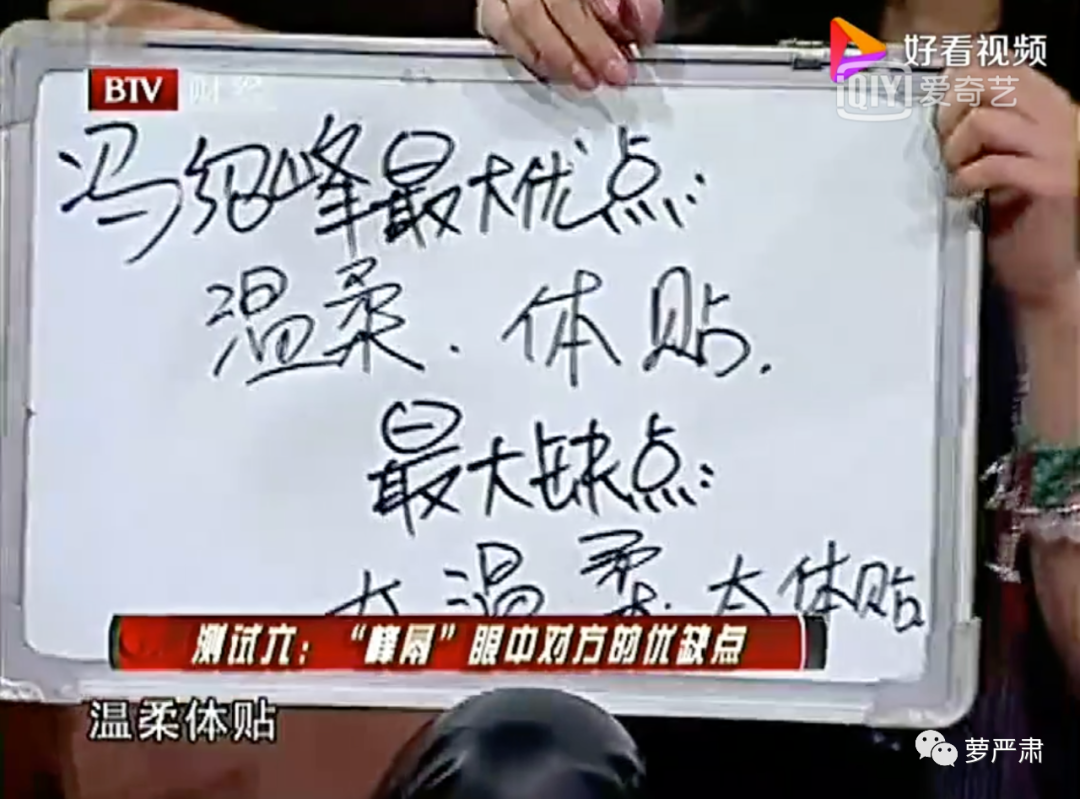 好看视频
BTV 财经
iQIYI 爱奇艺
冯绍峰最大优点:
温柔.体贴.
最大缺点:
太温柔.太体贴
测试六：“峰幂”眼中对方的优缺点
温柔体贴
萝严肃